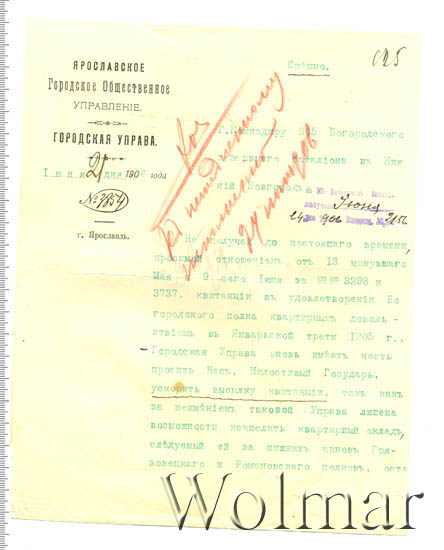 ЯРОСЛАВСКОЕ
Городское Общественное
УПРАВЛЕНІЕ.
ГОРОДСКАЯ УПРАВА.
Іюня 21 дня 1906 года
№ 7854
г. Ярославль.
Спѣшно.
125
Г. Командиру 325 Богородского
резервнаго баталіона въ Ниж
ній Новгородъ
Іюня
24 1906 2156
Не получая до настоящаго времени,
просимой отношеніемъ отъ 13 минувшаго
Мая и 9 сего Іюня за №№ 3298 и
3737. квитанціи въ удовлетвореніи Бо
городскаго полка квартирнымъ доволь-
ствіемъ въ Январьской трети 1905 г.,
Городская Управа вновь имѣетъ честь
просить Васъ, Милостивый Государь,
ускорить высылку квитанціи, такъ какъ
за неимѣніемъ таковой Управа лишена
возможности исчислить квартирный окладъ,
слѣдуемый ей за нижнихъ чиновъ Гря-
зовецкаго и Романовскаго полковъ, оста
Wolmar